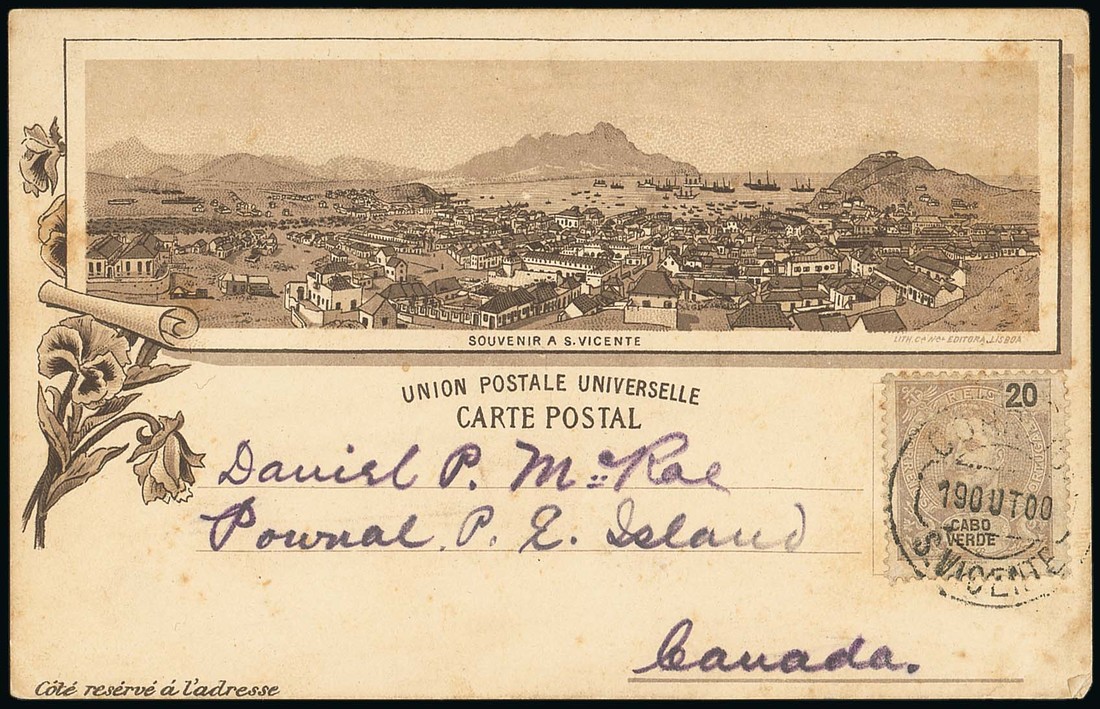 SOUVENIR A S. VICENTE
LITH. Cª Nªl EDITORA, LISBOA
UNION POSTALE UNIVERSELLE
CARTE POSTAL
20
19 OUT 00
CABO
VERDE
S. VICENTE
Daniel P. McRae
Pownal, P. E. Island
Canada.
Côté resérvé á l'adresse